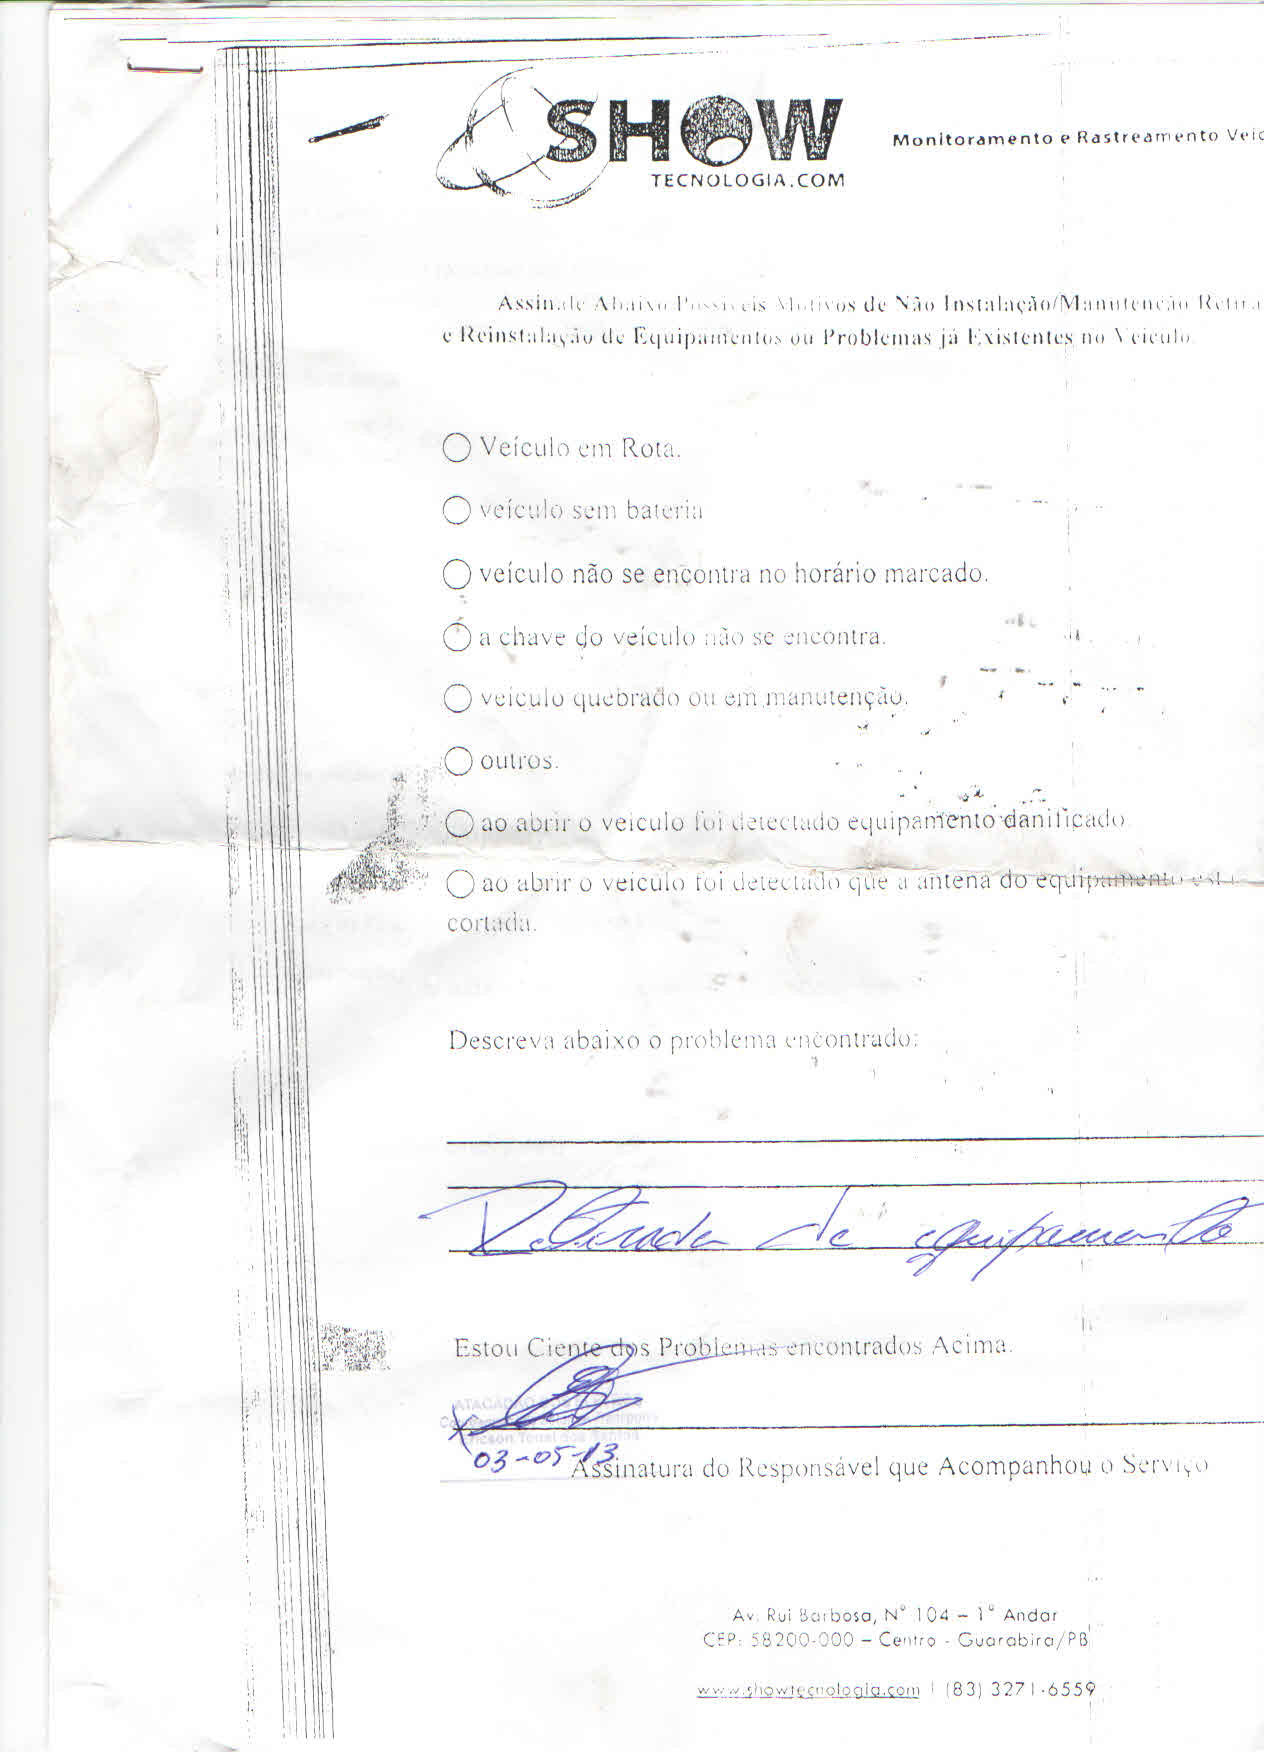 SHOW
TECNOLOGIA.COM
Monitoramento e Rastreamento Veic
Assinale Abaixo Possiveis Motivos de Não Instalação/Manutenção Retira
e Reinstalação de Equipamentos ou Problemas já Existentes no Veiculo.
Veículo em Rota.
veículo sem bateria
veículo não se encontra no horário marcado.
a chave do veículo não se encontra.
veiculo quebrado ou em manutenção.
outros.
ao abrir o veiculo foi detectado equipamento danificado.
ao abrir o veiculo foi detectado que a antena do equipamento esta
cortada.
Descreva abaixo o problema encontrado:
Retirada de equipamento
Estou Ciente dos Problemas encontrados Acima.
03-05-13
Assinatura do Responsável que Acompanhou o Serviço
Av. Rui Barbosa, N° 104 – 1° Andar
CEP: 58200-000 – Centro - Guarabira/PB
www.showtecnologia.com | (83) 3271-6559